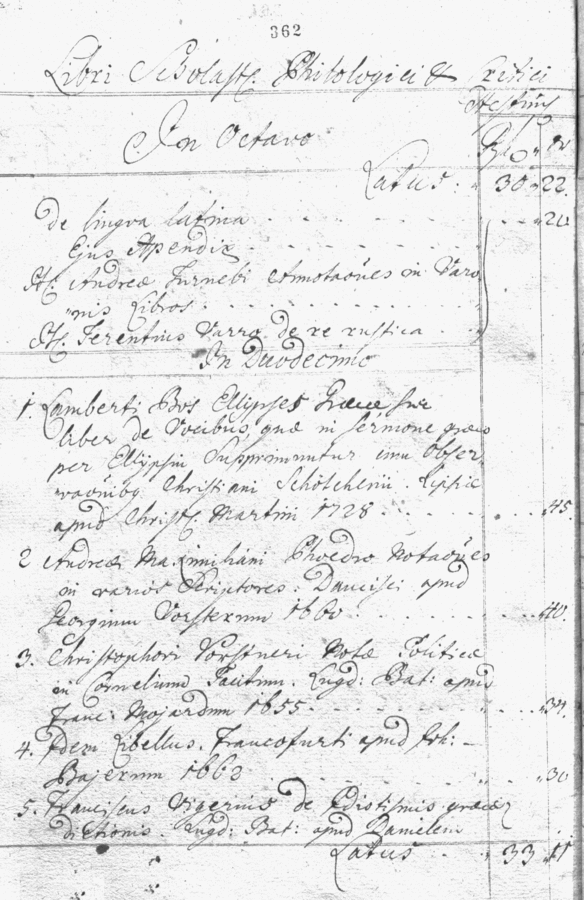 362
Libri Scholast: Philologici & Critici
In Octavo
Latus: 30 " 22.
de lingva latina . . . 20
Ejus Apendix
It: Andreæ Turnebi Annotaões in Varo
"nis Libros
It: Terentius Varro de re rustica
In Duodecimo
1 Lamberti Bos Ellipses Græcæ sive
liber de Vocibus, quæ in sermone græco
per Ellipsin Supprimuntur cum Obser,
vaõnibq Christiani Schötchenii. Lipsiæ
apud Christ: Martini 1728 . . . 45.
2 Andreæ Maximiliani Phoedro Notaões
in varios Scriptores. Dancisci apud
Georgium Vorsterum 1660 . . . 40.
3. Christophori Vorstneri Notæ Politicæ
in Cornelium Tacitum. Lugd: Bat: apud
Franc: Mojardum 1655 . . . 34.
4. Idem Libellus. Francofurti apud Joh:
Bajerum 1662 . . . 30
5. Franciscus Vigerius de Idiotismis græcæ
dictionis. Lugd: Bat: apud Danielem
Latus . . . 33 " 11